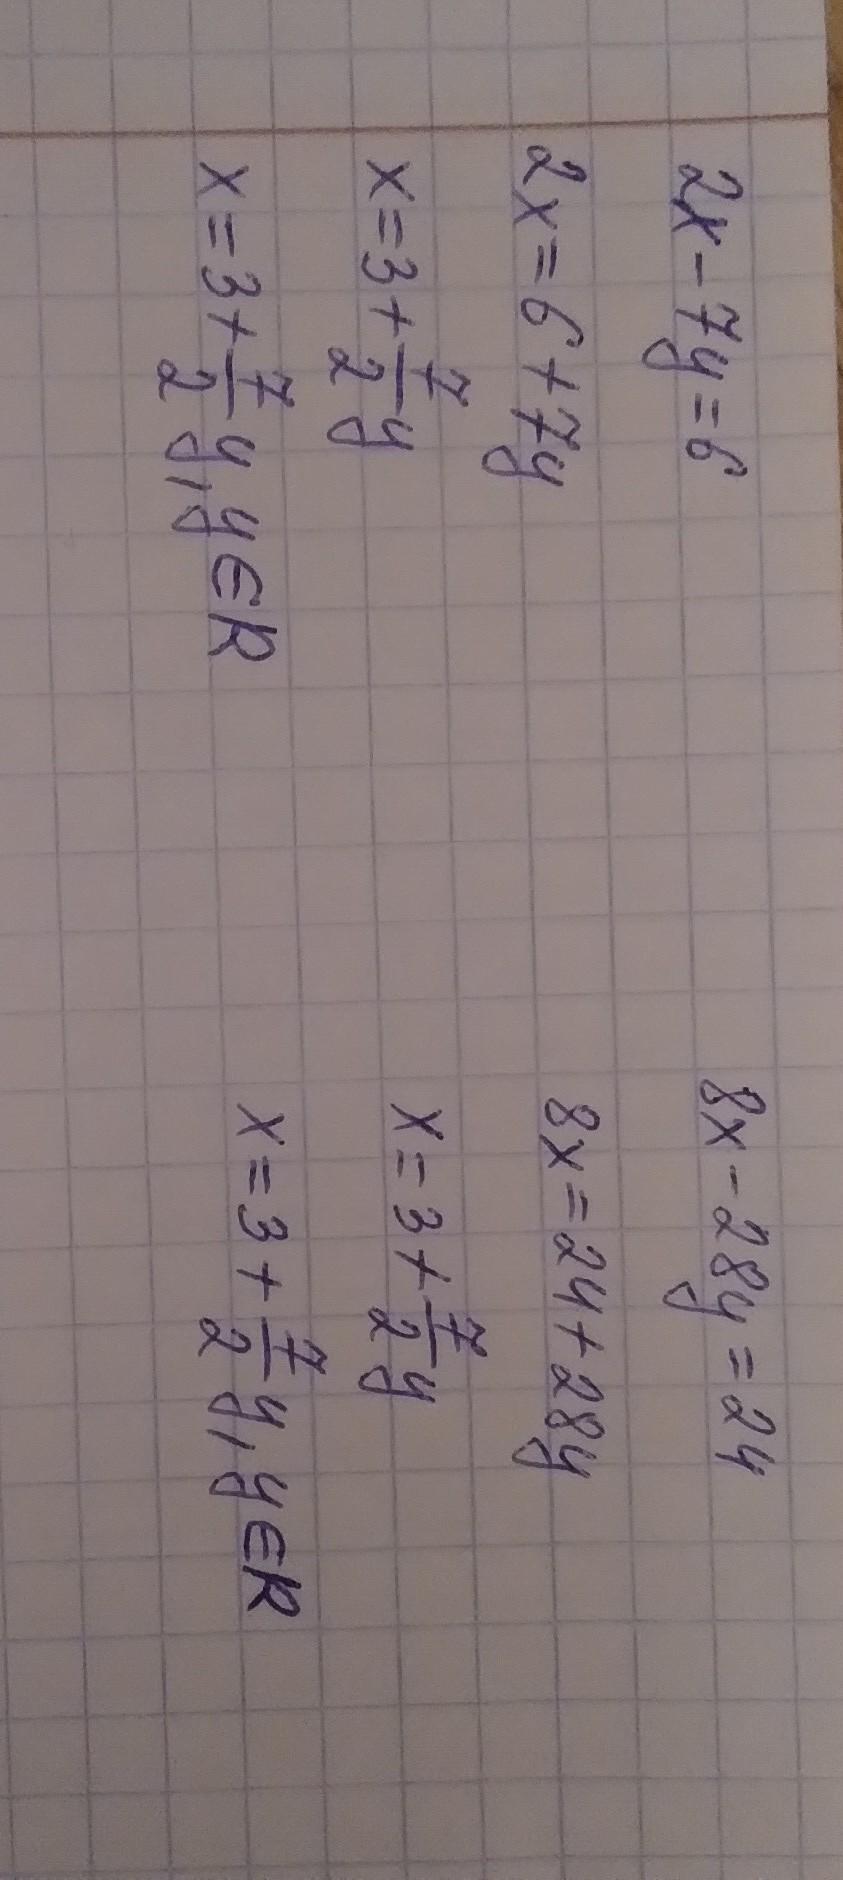 2x - 7y = 6
2x = 6 + 7y
x = 3 + 7/2 y
x = 3 + 7/2 y, y ∈ R
8x - 28y = 24
8x = 24 + 28y
x = 3 + 7/2 y
x = 3 + 7/2 y, y ∈ R